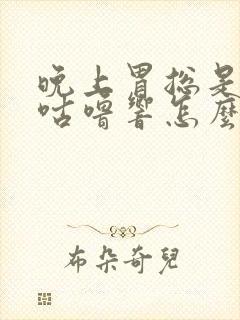 晚上胃总是
咕噜響怎麼
布朵奇兒